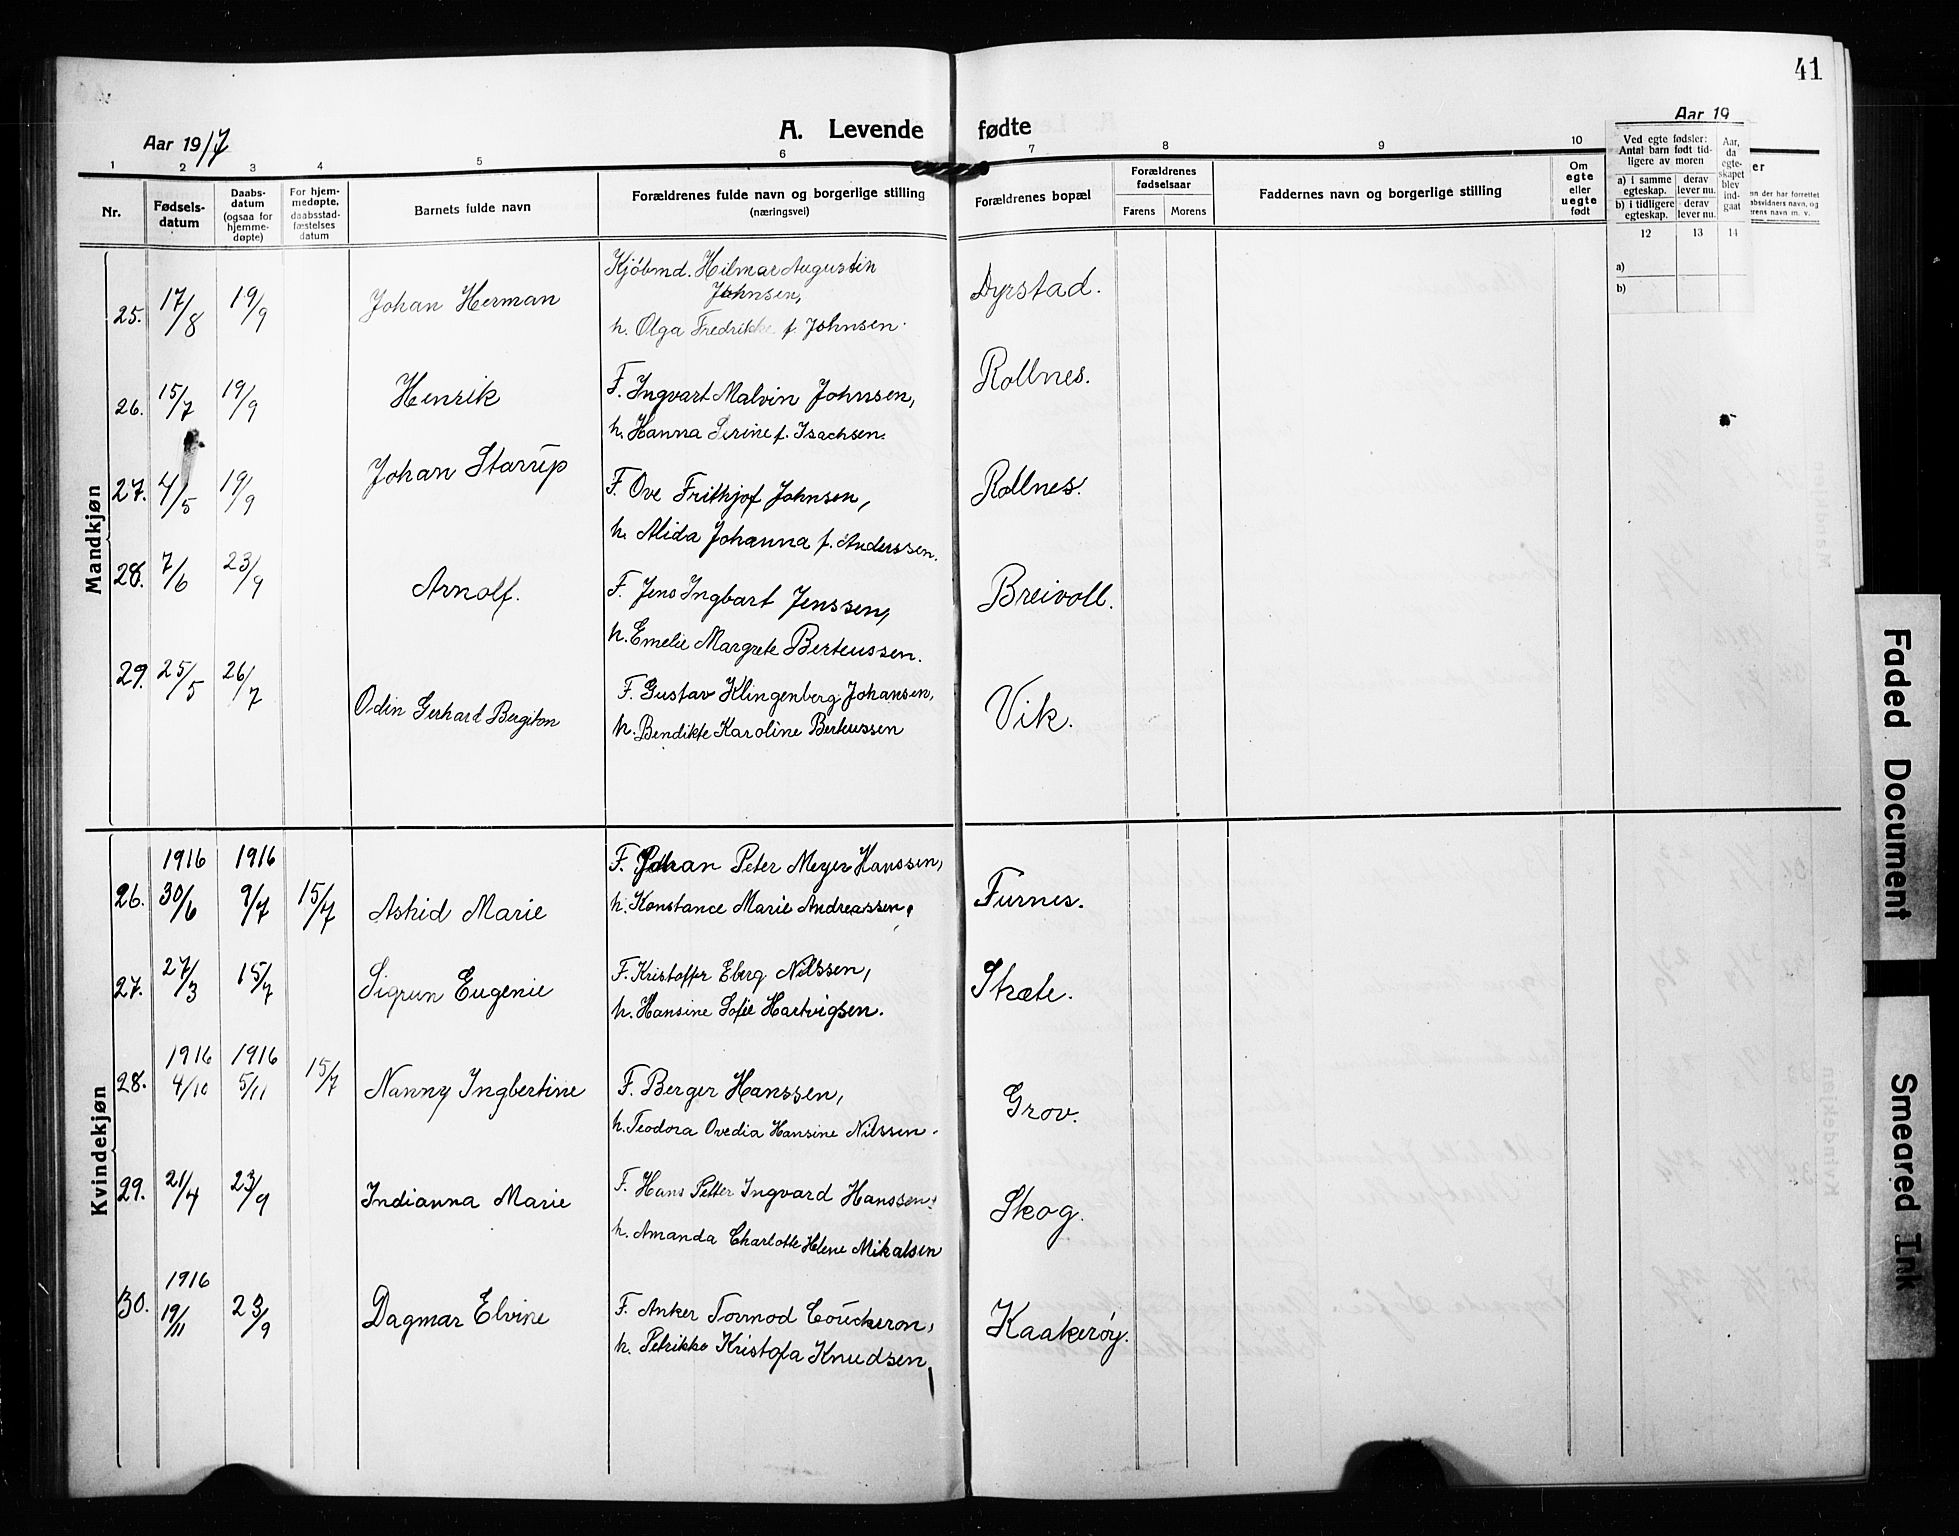 41
Aar 1917
A. Levende fødte
Aar 19
1 2 3 4 5 6 7 8 9 10
Nr.
Fødsels-
datum
Daabs-
datum
(ogsaa for
hjemme-
døpte)
For hjem-
medøpte,
daabsstad-
fæstelses
datum
Barnets fulde navn
Forældrenes fulde navn og borgerlige stilling
(næringsvei)
Forældrenes bopæl
Forældrenes
fødselsaar
Farens Morens
Faddernes navn og borgerlige stilling
Om
egte
eller
uegte
født
Ved egte fødsler:
Antal barn født tid-
ligere av moren
a) i samme
egteskap.
derav
lever nu.
b) i tidligere
egteskap.
derav
lever nu.
Aar,
da
egte-
skapet
blev
ind-
gaat
12 13 14
a)
b)
er
n der har forrettet
absvidners navn, og
erens navn m. v.
Mandkjøn
25. 17/8 19/9 Johan Herman
Kjøbmd. Hilmar Augustin
Johnsen,
h. Olga Fredrikke f. Johnsen.
Dyrstad.
26. 15/7 19/9 Henrik
F. Ingvart Malvin Johnsen,
h. Hanna Serine f. Isachsen.
Rollnes.
27. 4/5 19/9 Johan Starup
F. Ove Frithjof Johnsen,
h. Alida Johanna f. Anderssen.
Rollnes.
28. 7/6 23/9 Arnolf.
F. Jens Ingbart Jenssen,
h. Emelie Margrete Berteussen.
Breivoll.
29. 25/5 26/7 Odin Gerhard Bergiton
F. Gustav Klingenberg Johansen,
h. Bendikte Karoline Berteussen
Vik.
Kvindekjøn
1916 1916
26. 30/6 9/7 15/7 Astrid Marie
F. Johan Peter Meyer Hanssen,
h. Konstance Marie Andreassen.
Furnes.
27. 27/3 15/7 Sigrun Eugenie
F. Kristoffer Eberg Nilssen,
h. Hansine Sofie Hartvigsen.
Stræte.
1916 1916
28. 4/10 5/11 15/7 Nanny Ingbertine
F. Berger Hanssen,
h. Teodora Ovedia Hansine Nilssen.
Grov.
29. 21/4 23/9 Indianna Marie
F. Hans Petter Ingvard Hanssen.
h. Amanda Charlotte Helene Mikalsen
Skog.
1916
30. 19/11 23/9 Dagmar Elvine
F. Anker Tormod Coucheron,
h. Petrikke Kristofa Knudsen
Kaakerøy.
Faded Document
Smeared Ink